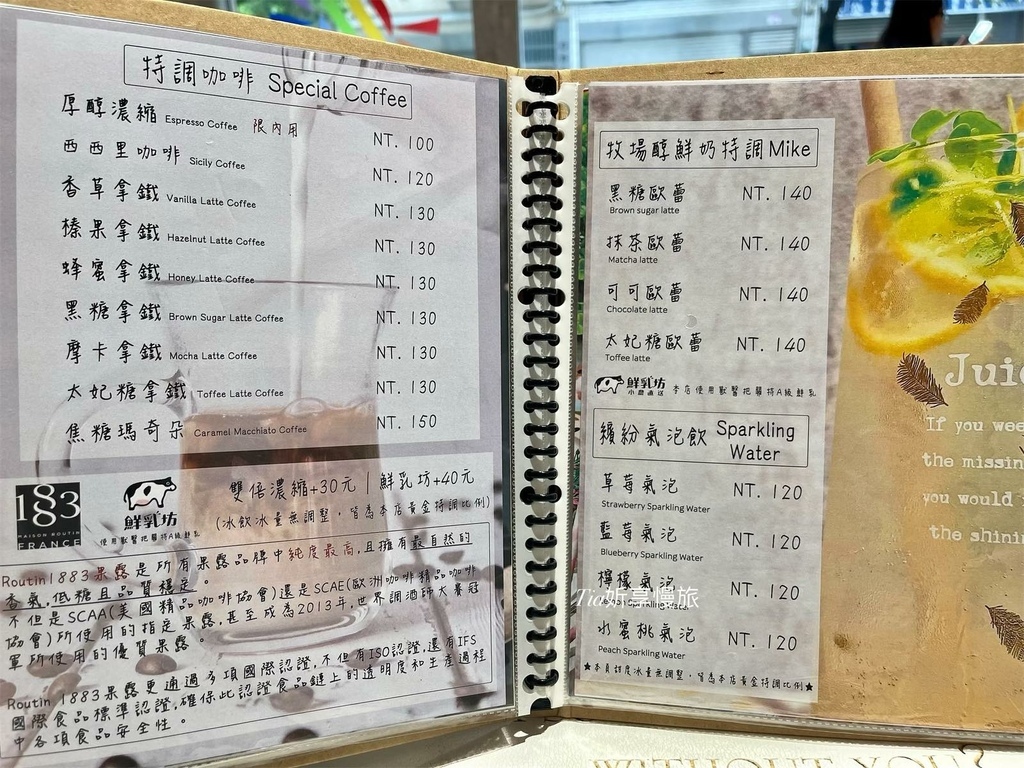 特調咖啡 Special Coffee
厚醇濃縮 Espresso Coffee 限內用 NT. 100
西西里咖啡 Sicily Coffee NT. 120
香草拿鐵 Vanilla Latte Coffee NT. 130
榛果拿鐵 Hazelnut Latte Coffee NT. 130
蜂蜜拿鐵 Honey Latte Coffee NT. 130
黑糖拿鐵 Brown Sugar Latte Coffee NT. 130
摩卡拿鐵 Mocha Latte Coffee NT. 130
太妃糖拿鐵 Toffee Latte Coffee NT. 130
焦糖瑪奇朵 Caramel Macchiato Coffee NT. 150
1883
MAISON ROUTIN
FRANCE
鮮乳坊
使用獸醫把關特A級鮮乳
雙倍濃縮+30元 | 鮮乳坊+40元
(冰飲冰量無調整，皆為本店黃金特調比例)
Routin1883果露是所有果露品牌中純度最高,且擁有最自然的
香氣,低糖且品質穩定。
不但是SCAA(美國精品咖啡協會)還是SCAE(歐洲咖啡精品咖啡
協會)所使用的指定果露,甚至成為2013年,世界調酒師大賽冠
軍所使用的優質果露。
Routin 1883果露更通過多項國際認證,不但有ISO認證,還有IFS
國際食品標準認證,確保此認證食品鏈上的透明度和生產過程
中各項食品安全性。
牧場醇鮮奶特調Mike
黑糖歐蕾 NT. 140
Brown sugar latte
抹茶歐蕾 NT. 140
Matcha latte
可可歐蕾 NT. 140
Chocolate latte
太妃糖歐蕾 NT. 140
Toffee latte
鮮乳坊
小農直送
本店使用獸醫把關特A級鮮乳
繽紛氣泡飲 Sparkling Water
草莓氣泡 NT. 120
Strawberry Sparkling Water
藍莓氣泡 NT. 120
Blueberry Sparkling Water
檸檬氣泡 NT. 120
Sparkling Water
水蜜桃氣泡 NT. 120
Peach Sparkling Water
★本頁甜度冰量無調整，皆為本店黃金特調比例★
Juic
If you wee
the missin
you would
the shinin
Tia妡享慢旅
WITHOUT YOU?